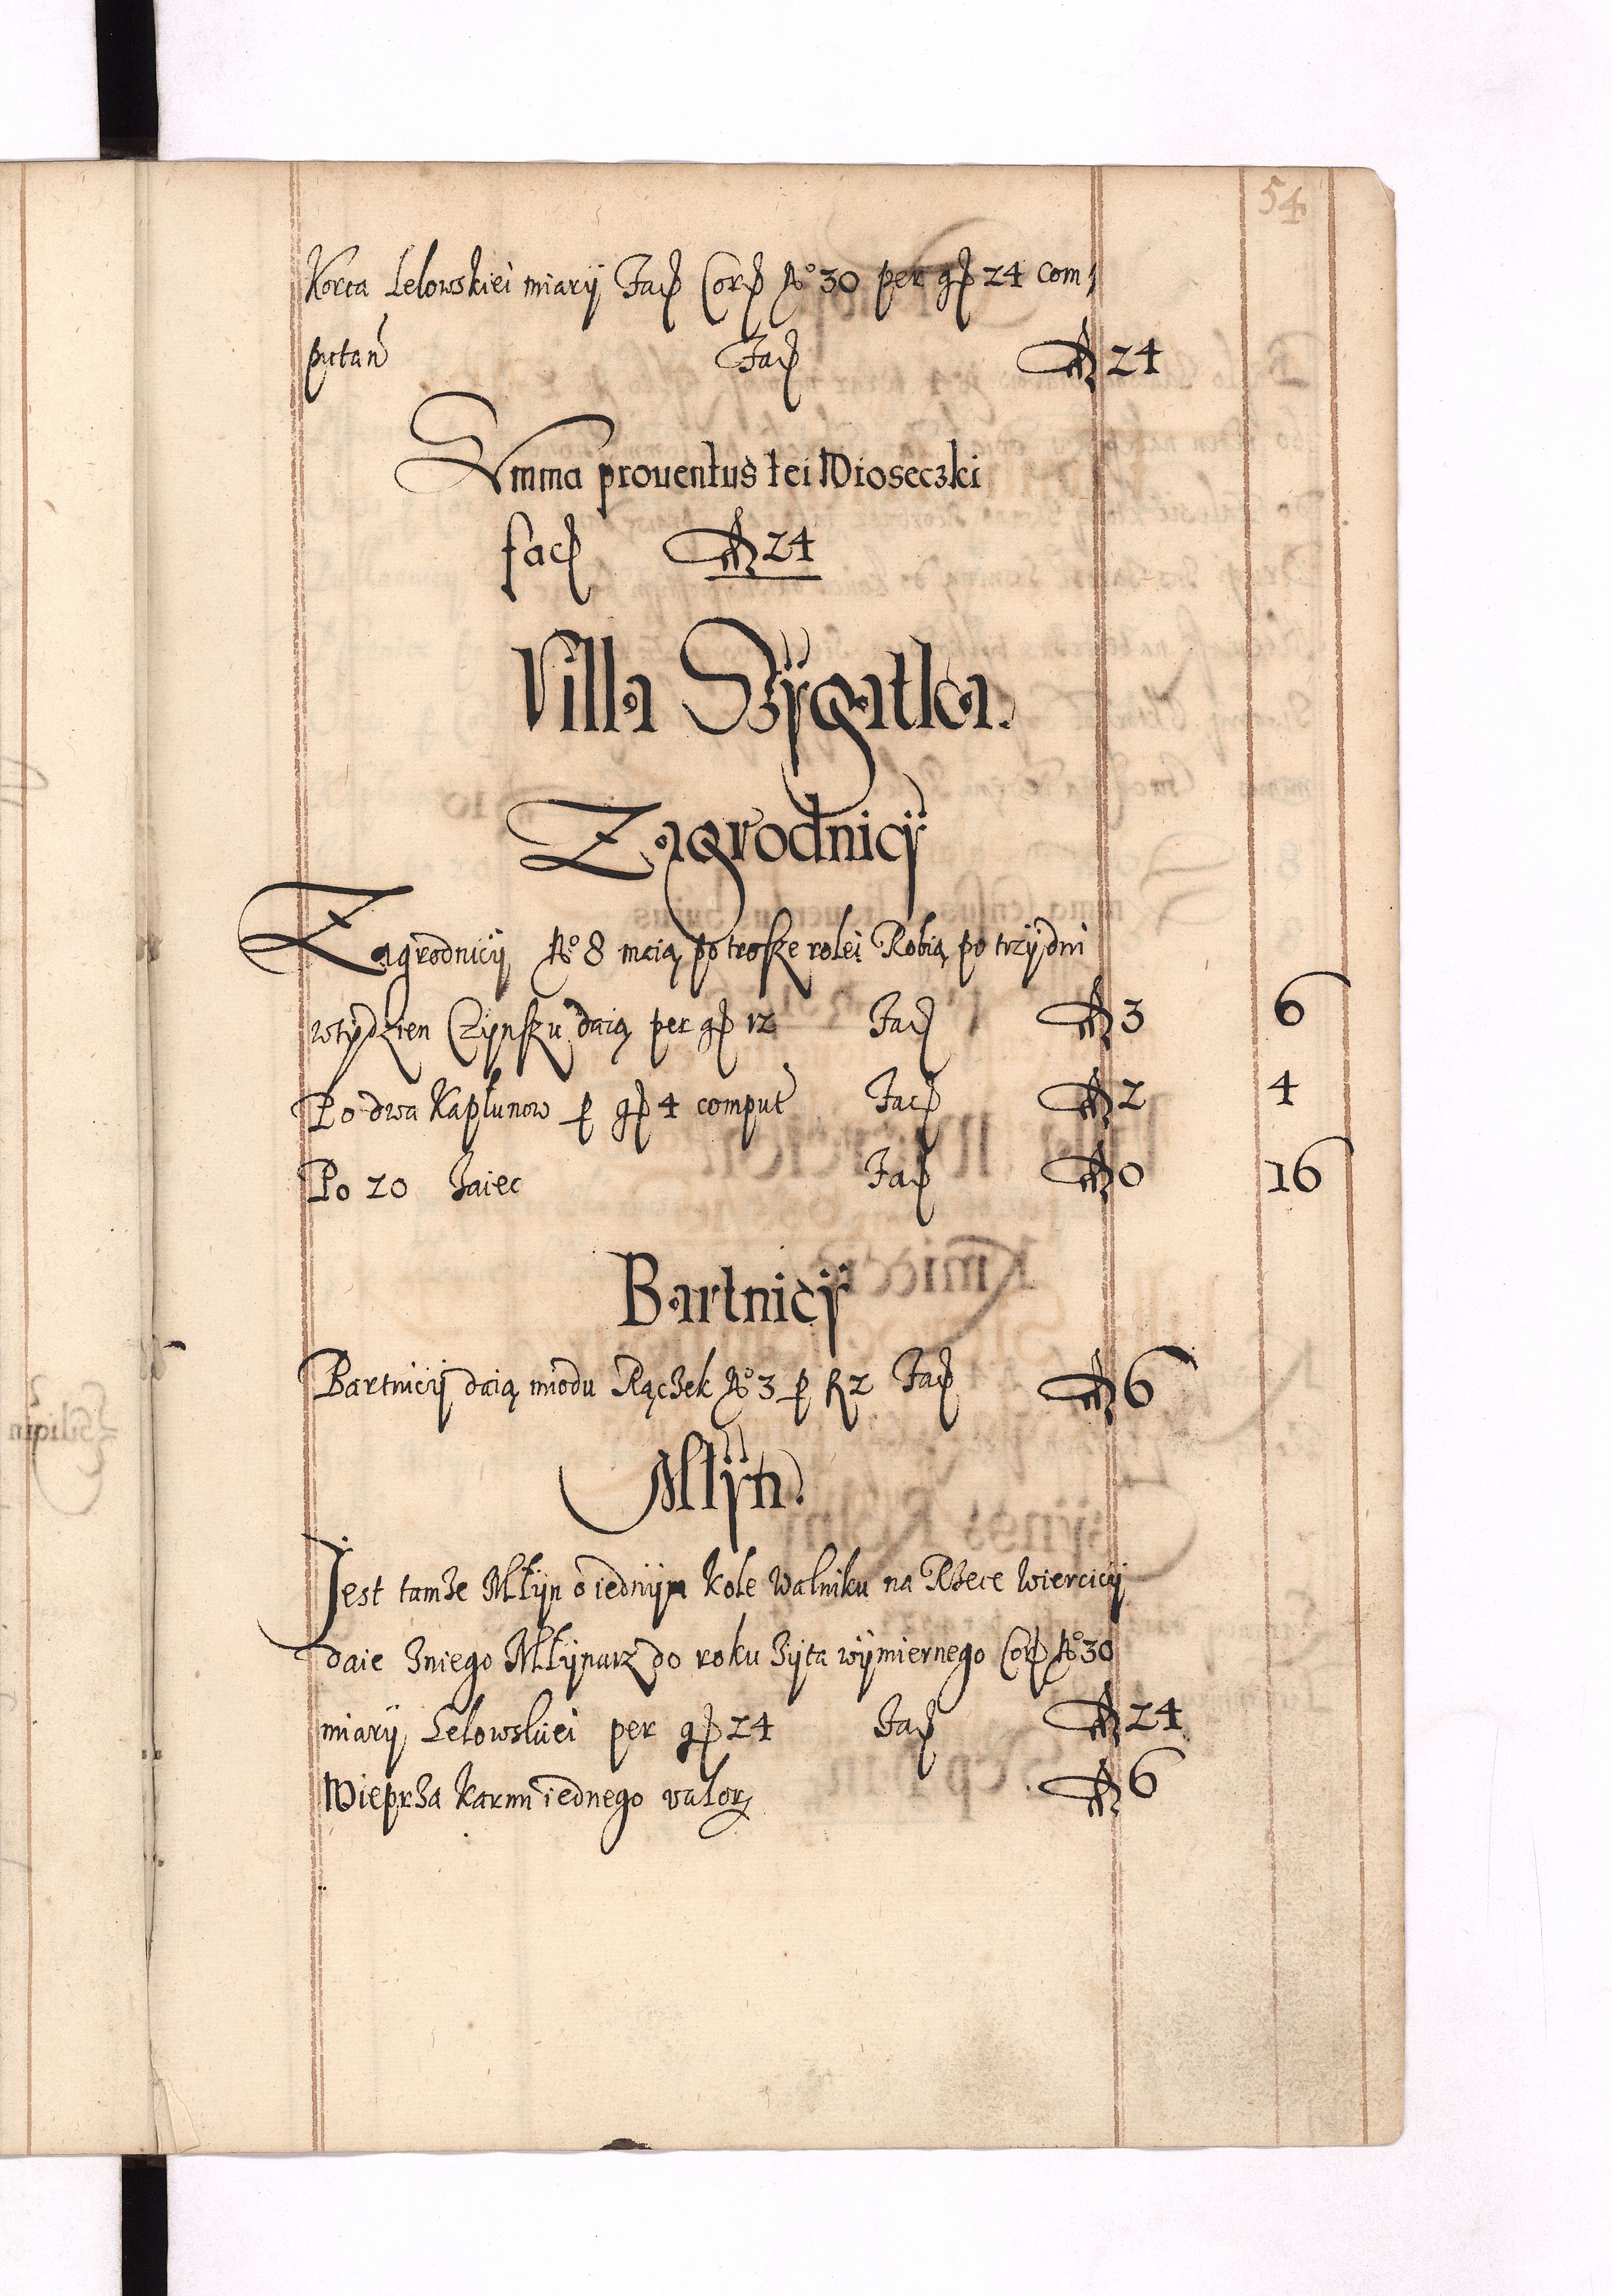 54
Korca Lelowskiei miarÿ Fac Corc No 30 per gr 24 com,
putan Fac fl 24
Summa prouentus tei Wioseczki
fac fl 24
Villa Sÿgatka.
Zagrodnicÿ
Zagrodnicÿ No 8 maią po trosze rolei Robią po trzÿ dni
wtÿdzien Czÿnszu daią per gr 12 Fac fl 3 6
Po dwa Kapłunow p gr 4 comput Fac fl 2 4
Po 20 Jaiec Fac fl 0 16
Bartnicÿ
Bartnicÿ daią miodu Rączek No 3 p fl 2 Fac fl 6
Młÿn.
Jest tamże Młÿn o iednÿm kole Walniku na Rzece Wiercicÿ
daie zniego Młÿnarz do roku żÿta wÿmiernego Corc No 30
miarÿ Lelowskiei per gr 24 Fac fl 24
Wieprza karmi iednego valor fl 6